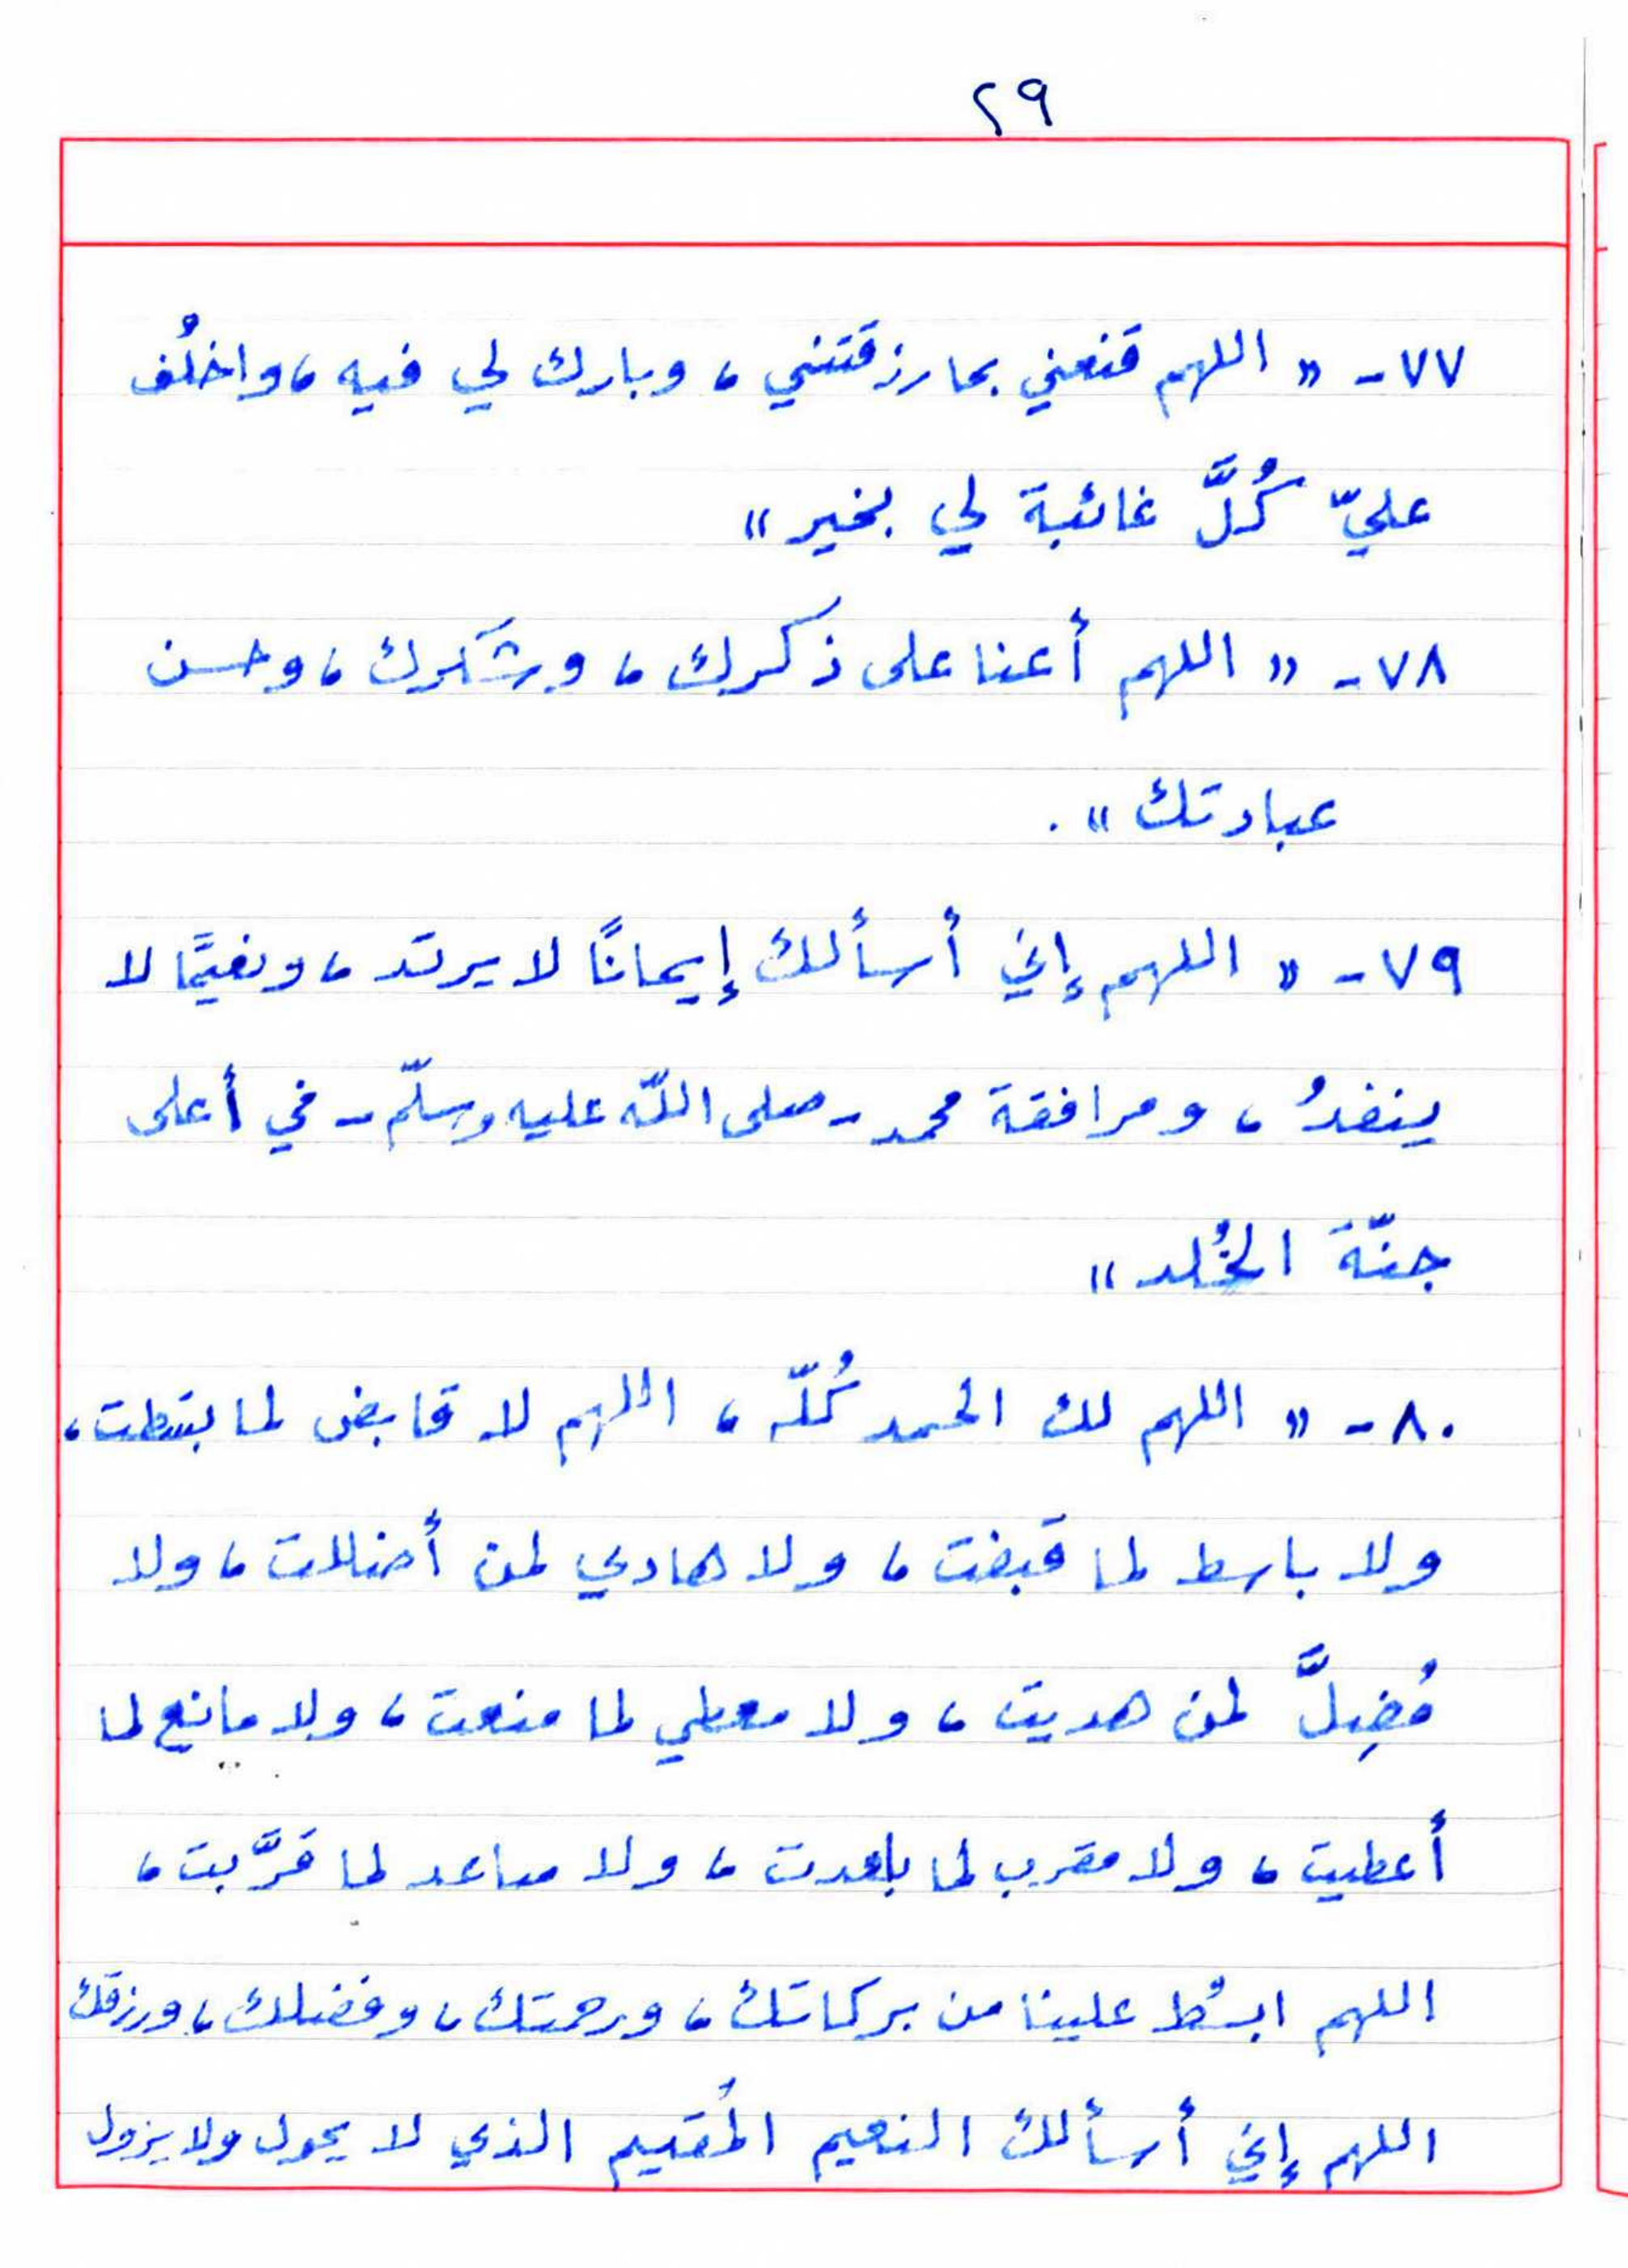 ٢٩
٧٧- « اللهم قنعني بما رزقتني، وبارك لي فيه، واخلُف
عليّ كُلَّ غائبة لي بخير »
٧٨- « اللهم أعنا على ذكرك، وشكرك، وحسن
عبادتك ».
٧٩- « اللهم إني أسألك إيمانًا لا يرتد، ونعيمًا لا
ينفدُ، ومرافقة محمد - صلى اللّه عليه وسلّم - في أعلى
جنّة الخُلد »
٨٠- « اللهم لك الحمد كُلّه، اللهم لا قابض لما بسَطت،
ولا باسط لما قبضت، ولا هادي لمن أضللت، ولا
مُضِلَّ لمن هديت، ولا معطي لما منعت، ولا مانع لما
أعطيت، ولا مقرب لما باعدت، ولا مباعد لما قرَّبت،
اللهم ابسُط علينا من بركاتك، ورحمتك، وفضلك، ورزقك
اللهم إني أسألك النعيم المُقيم الذي لا يحول ولا يزول